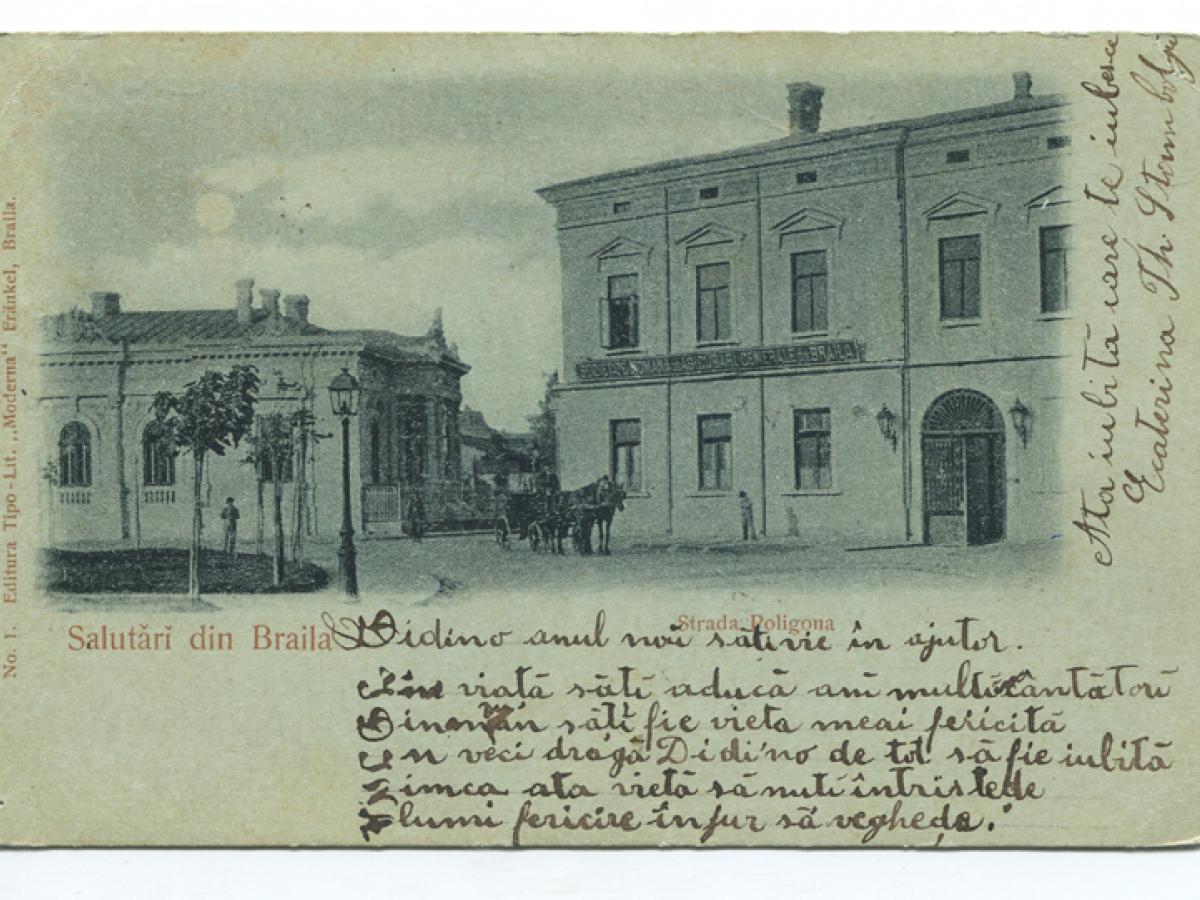 No. 1. Editura Tipo-Lit. „Moderna“ Fränkel, Braila.
GENERALE BRAILA
Salutări din Braila
Strada Poligona
Didino anul noŭ sătivie în ajutor.
În viață sătĭ aducă anĭ multĭ cântătorĭ
Din sătĭ fie vieta meai fericită
În vecĭ dragă Didino de tot să fie iubită
ata vietă să nutĭ întristede
lumi fericire înjur să veghede.
Ata iubita care te iubesce
Ecaterina Th.